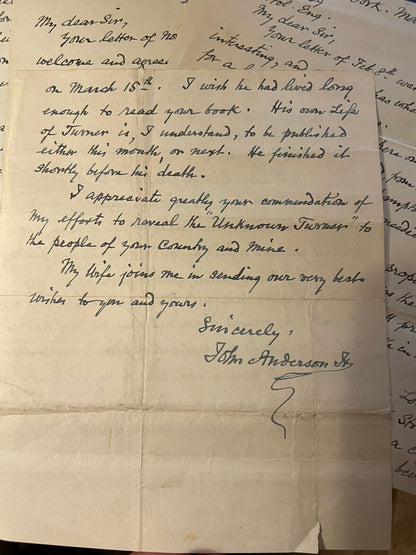 My dear Sir,
Your letter of No
welcome and agree
York. Ma
tol. Eng.
My dear Sir,
Your letter of Feb 8th were
interesting, and
for a
on March 15th. I wish he had lived long
enough to read your book. His own Life
of Turner is, I understand, to be published
either this month, or next. He finished it
shortly before his death.
I appreciate greatly your commendation of
my efforts to reveal the "Unknown Turner" to
the people of your Country and mine.
My Wife joins me in sending our very best
wishes to you and yours.
Sincerely,
John Anderson Jr